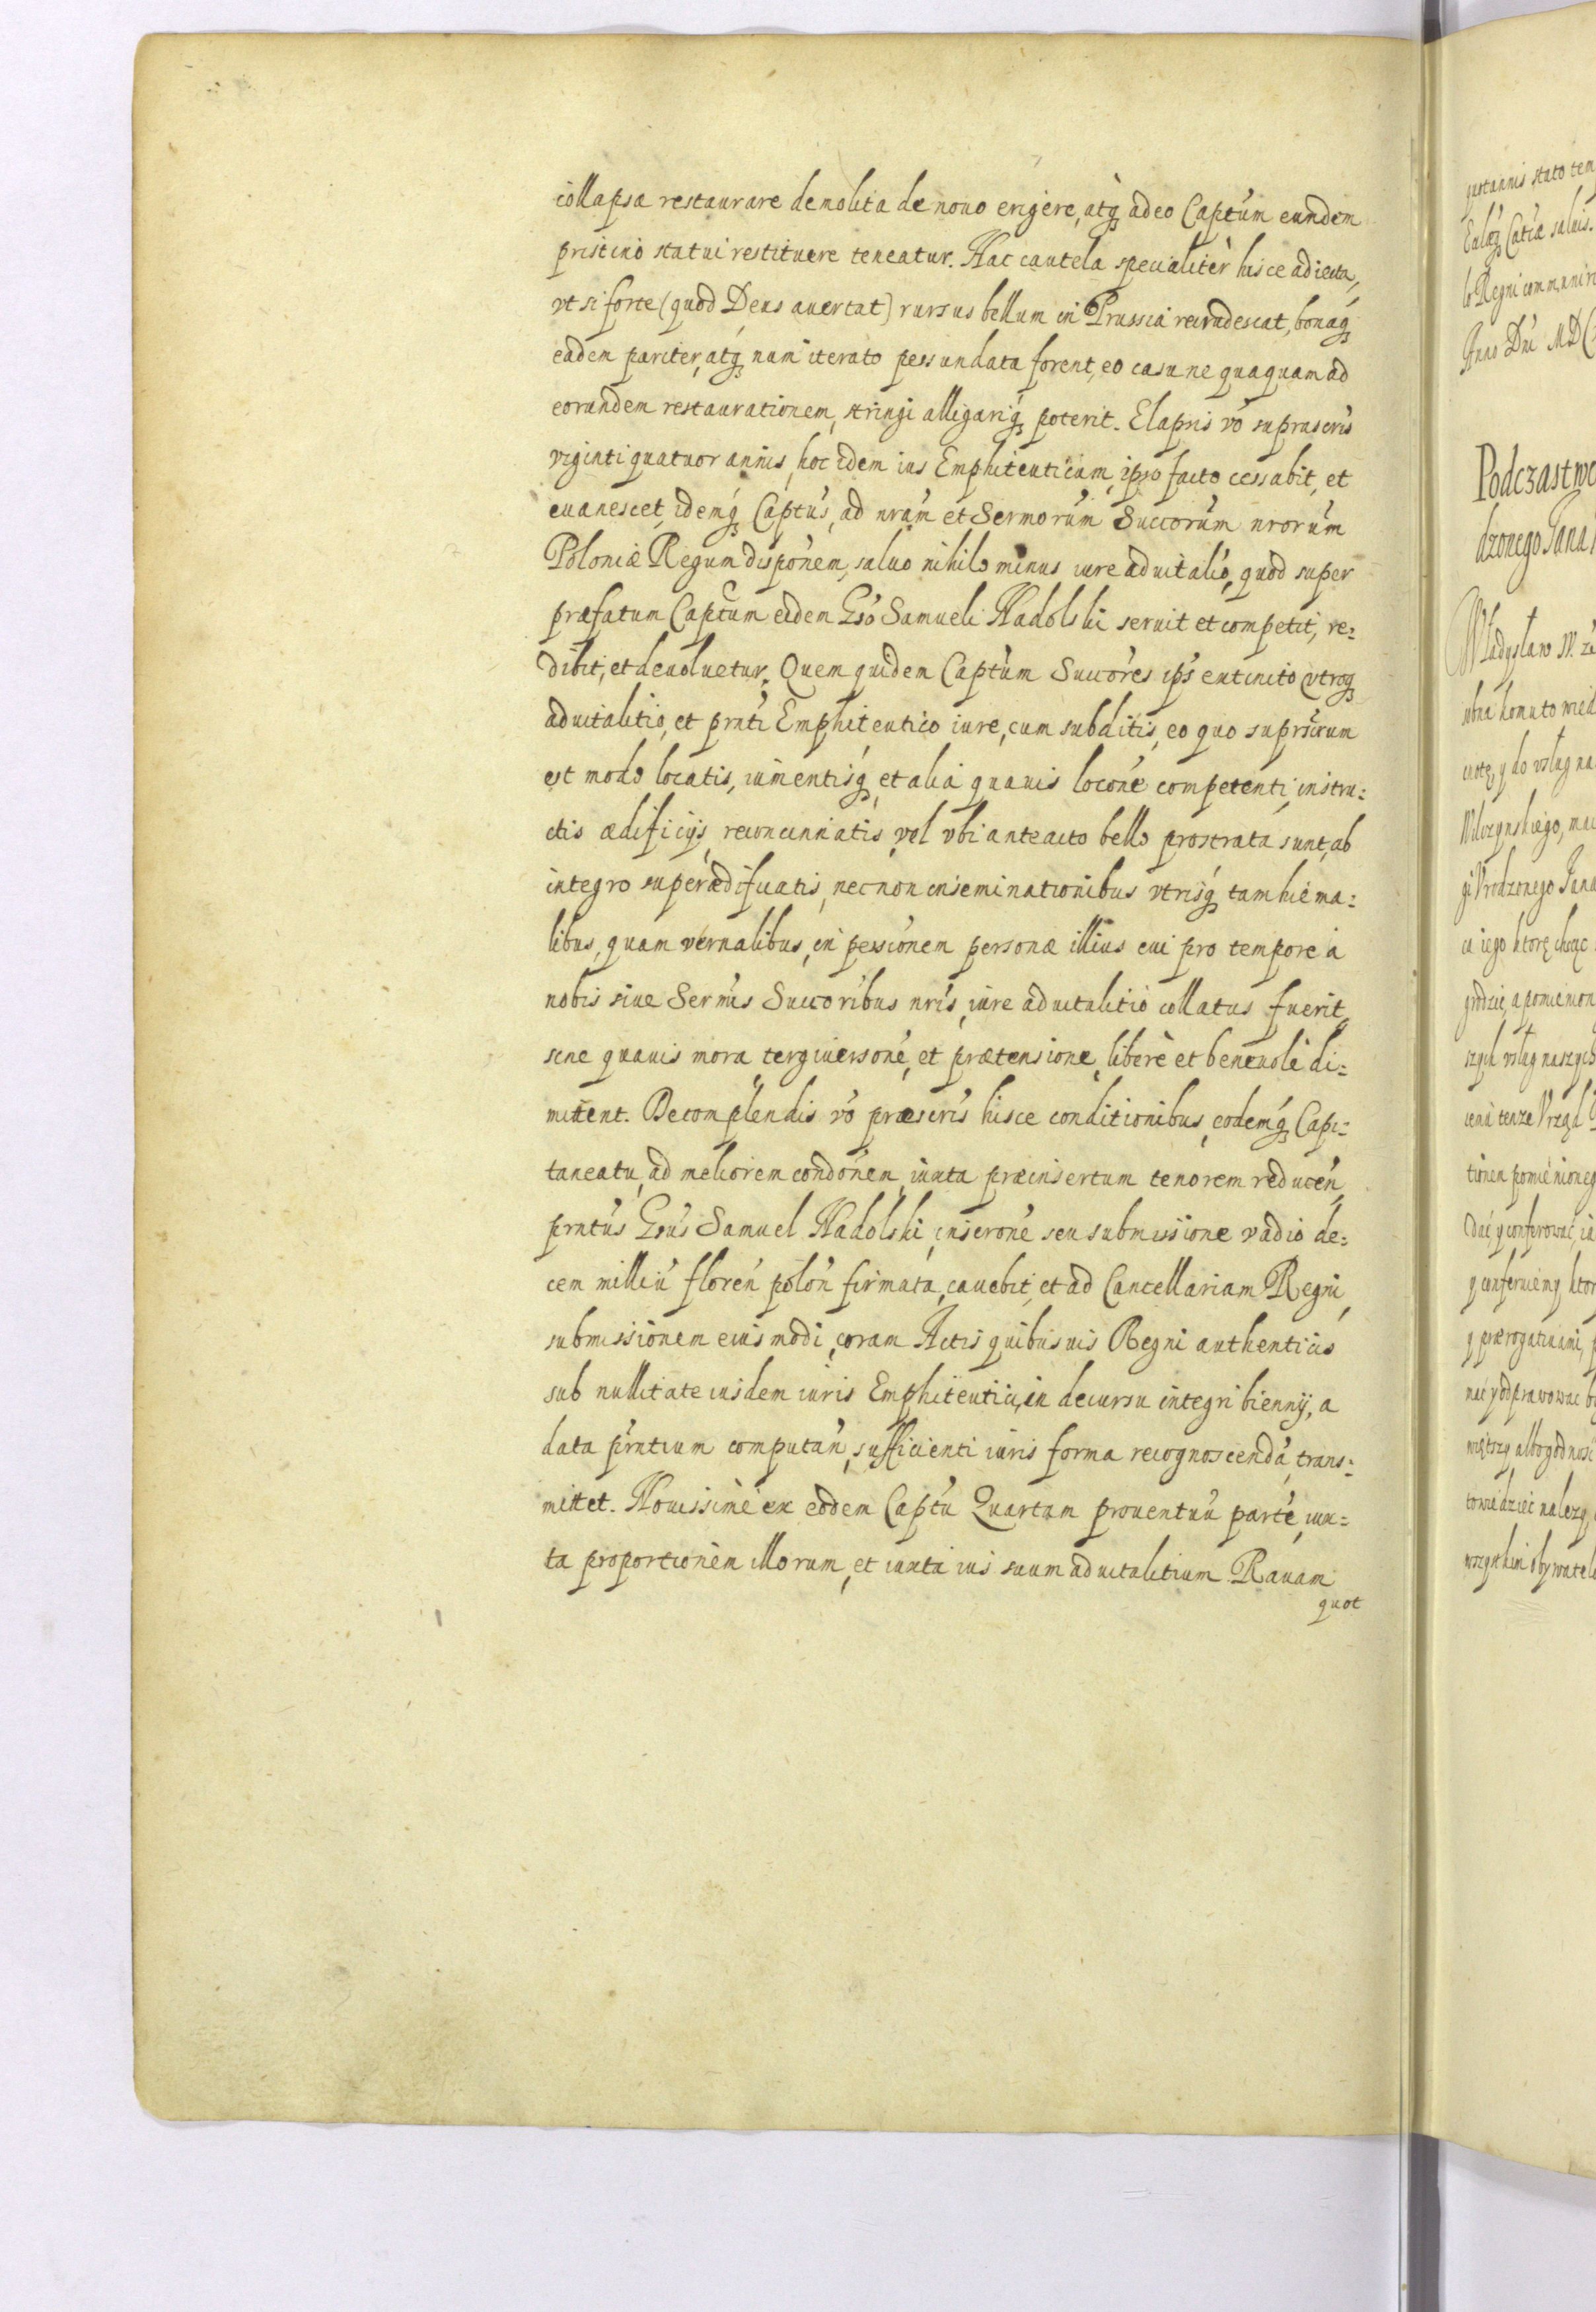 collapsa restaurare demolita de nouo erigere, atq adeo Captúm eundem
pristino statui restituere teneatur. Hac cautela specialiter hisce adiecta,
vt si forte (quod Deus auertat) rursus bellum in Prussia recrudescat, bonaq
eadem pariter, atq nam iterato pessundata forent, eo casu ne quaquam ad
eorundem restaurationem, stringi alligariq poterit. Elapsis vo suprascris
viginti quatuor annis, hoc idem ius Emphiteuticum, ipso facto cessabit, et
euanescet, idemq Captus, ad nram et Sermorum Succorum nrorum
Poloniæ Regum disponem, saluo nihilo minus iure aduitalio, quod super
præfatum Captum eidem Gso Samueli Nadolski seruit et competit, re=
dibit, et deuoluetur. Quem quidem Captum Succores ips extincto vtroq
aduitalitio, et prnti Emphiteutico iure, cum subditis, eo quo suprscrum
est modo locatis, iumentisq et alia quauis locone competenti, instru=
ctis ædificijs, reconcinnatis, vel vbi anteacto bello prostrata sunt, ab
integro superædificatis, necnon inseminationibus vtrisq tam hiema=
libus, quam vernalibus, in possionem personæ illius cui pro tempore a
nobis siue Sermis Succoribus nris, iure aduitalitio collatus fuerit,
sine quauis mora tergiuersone, et prætensione, liberè et beneuolè di=
mittent. De complendis vo præscris hisce conditionibus, eodemq Capi=
taneatu, ad meliorem condonem, iuxta præinsertum tenorem reducen,
prntus Gsus Samuel Nadolski, inscrone seu submissione vadio de=
cem milliu floren polon firmata, cauebit, et ad Cancellariam Regni,
submissionem eiusmodi, coram Actis quibusuis Regni authenticis
sub nullitate iusdem iuris Emphiteutici, in decursu integri biennij, a
data prntium computan, sufficienti iuris forma recognoscenda, trans=
mittet. Nouissimè ex eodem Captu Quartam prouentuu parte, iux=
ta proportionem illorum, et iuxta ius suum aduitalitium Rauam
quot
Podczastwo
dzonego Jana